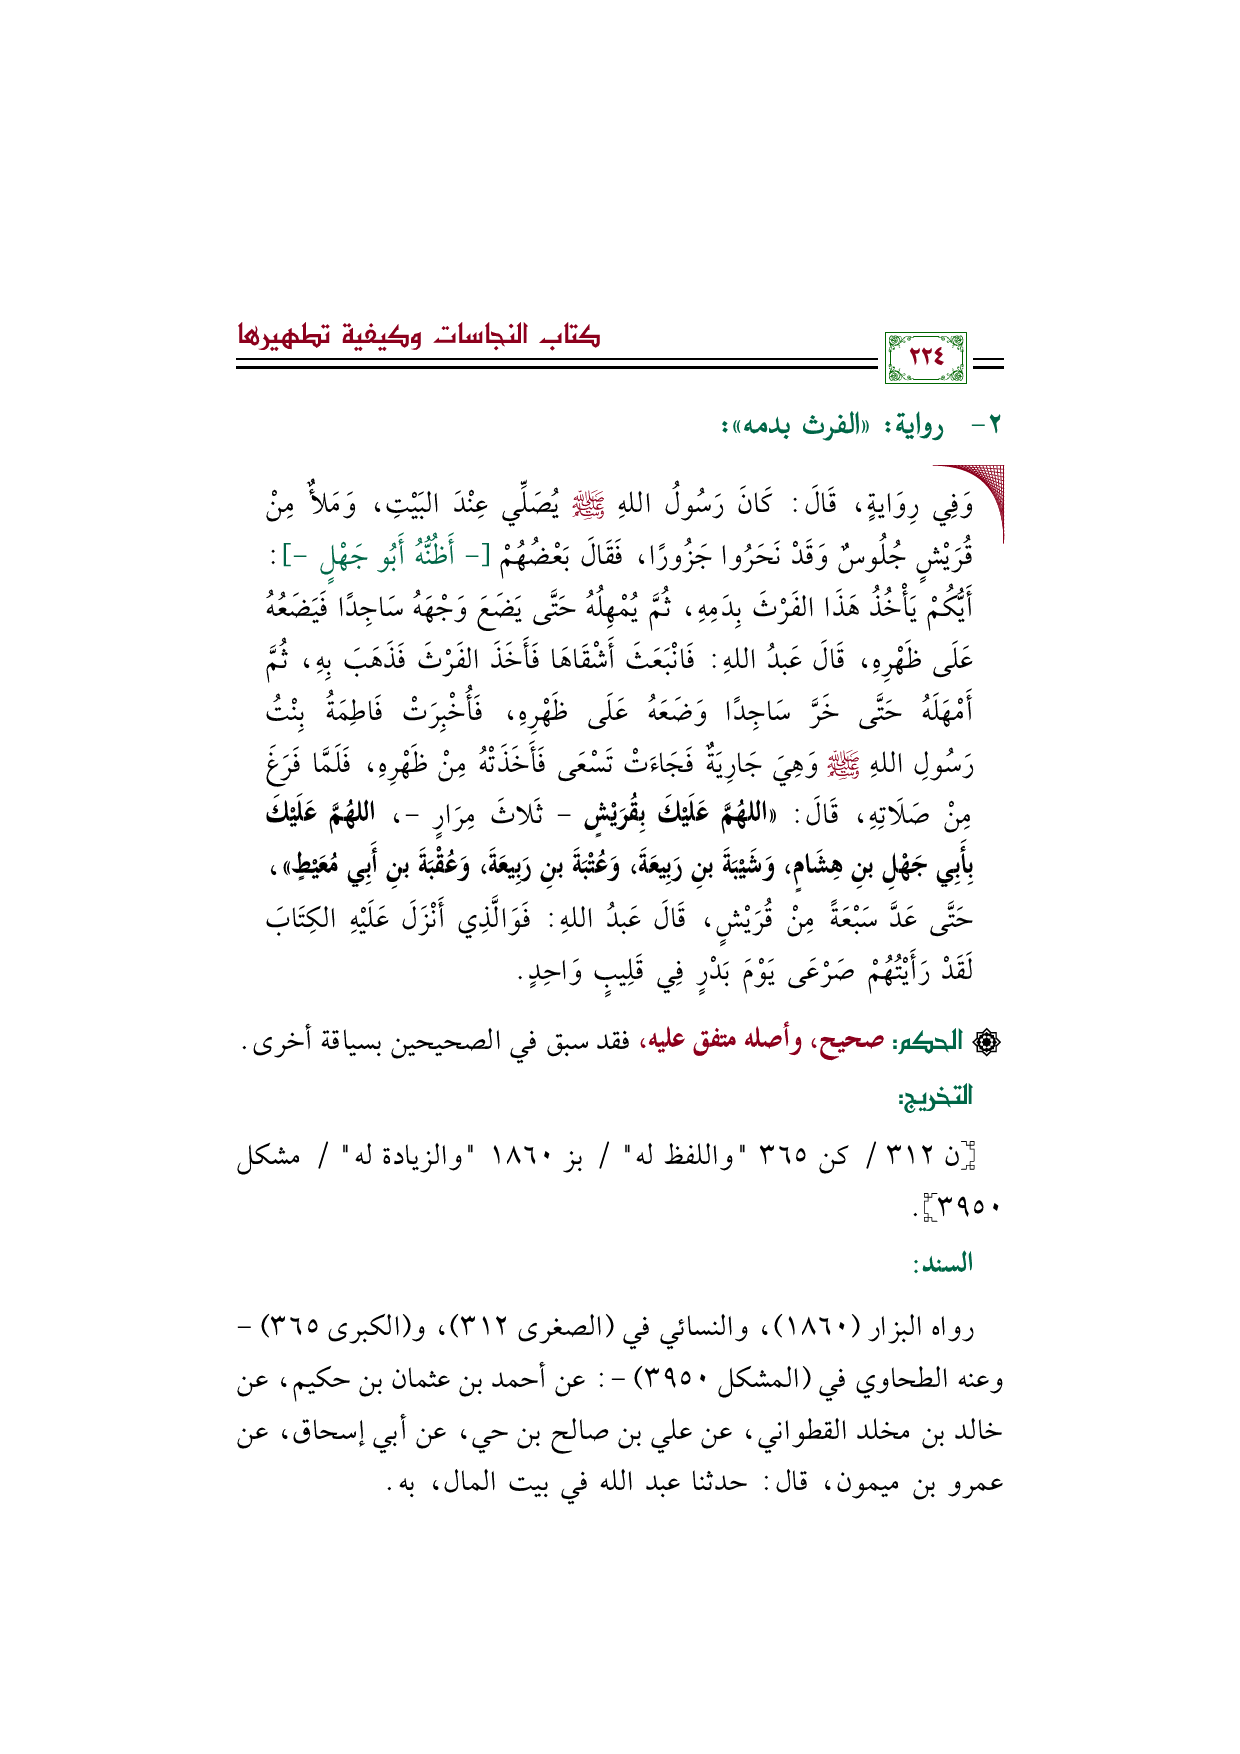 كتاب النجاسات وكيفية تطهيرها
٢٢٤
٢- رواية: «الفرث بدمه»:
وَفِي رِوَايةٍ، قَالَ: كَانَ رَسُولُ اللهِ ﷺ يُصَلِّي عِنْدَ البَيْتِ، وَمَلأٌ مِنْ
قُرَيْشٍ جُلُوسٌ وَقَدْ نَحَرُوا جَزُورًا، فَقَالَ بَعْضُهُمْ [- أَظُنُّهُ أَبُو جَهْلٍ -]:
أَيُّكُمْ يَأْخُذُ هَذَا الفَرْثَ بِدَمِهِ، ثُمَّ يُمْهِلُهُ حَتَّى يَضَعَ وَجْهَهُ سَاجِدًا فَيَضَعُهُ
عَلَى ظَهْرِهِ، قَالَ عَبدُ اللهِ: فَانْبَعَثَ أَشْقَاهَا فَأَخَذَ الفَرْثَ فَذَهَبَ بِهِ، ثُمَّ
أَمْهَلَهُ حَتَّى خَرَّ سَاجِدًا وَضَعَهُ عَلَى ظَهْرِهِ، فَأُخْبِرَتْ فَاطِمَةُ بِنْتُ
رَسُولِ اللهِ ﷺ وَهِيَ جَارِيَةٌ فَجَاءَتْ تَسْعَى فَأَخَذَتْهُ مِنْ ظَهْرِهِ، فَلَمَّا فَرَغَ
مِنْ صَلَاتِهِ، قَالَ: «اللهُمَّ عَلَيْكَ بِقُرَيْشٍ - ثَلاثَ مِرَارٍ -، اللهُمَّ عَلَيْكَ
بِأَبِي جَهْلِ بنِ هِشَامٍ، وَشَيْبَةَ بنِ رَبِيعَةَ، وَعُتْبَةَ بنِ رَبِيعَةَ، وَعُقْبَةَ بنِ أَبِي مُعَيْطٍ»،
حَتَّى عَدَّ سَبْعَةً مِنْ قُرَيْشٍ، قَالَ عَبدُ اللهِ: فَوَالَّذِي أَنْزَلَ عَلَيْهِ الكِتَابَ
لَقَدْ رَأَيْتُهُمْ صَرْعَى يَوْمَ بَدْرٍ فِي قَلِيبٍ وَاحِدٍ.
الحكم: صحيح، وأصله متفق عليه، فقد سبق في الصحيحين بسياقة أخرى.
التخريج:
[ن ٣١٢ / كن ٣٦٥ "واللفظ له" / بز ١٨٦٠ "والزيادة له" / مشكل
٣٩٥٠].
السند:
رواه البزار (١٨٦٠)، والنسائي في (الصغرى ٣١٢)، و(الكبرى ٣٦٥) -
وعنه الطحاوي في (المشكل ٣٩٥٠) -: عن أحمد بن عثمان بن حكيم، عن
خالد بن مخلد القطواني، عن علي بن صالح بن حي، عن أبي إسحاق، عن
عمرو بن ميمون، قال: حدثنا عبد الله في بيت المال، به.